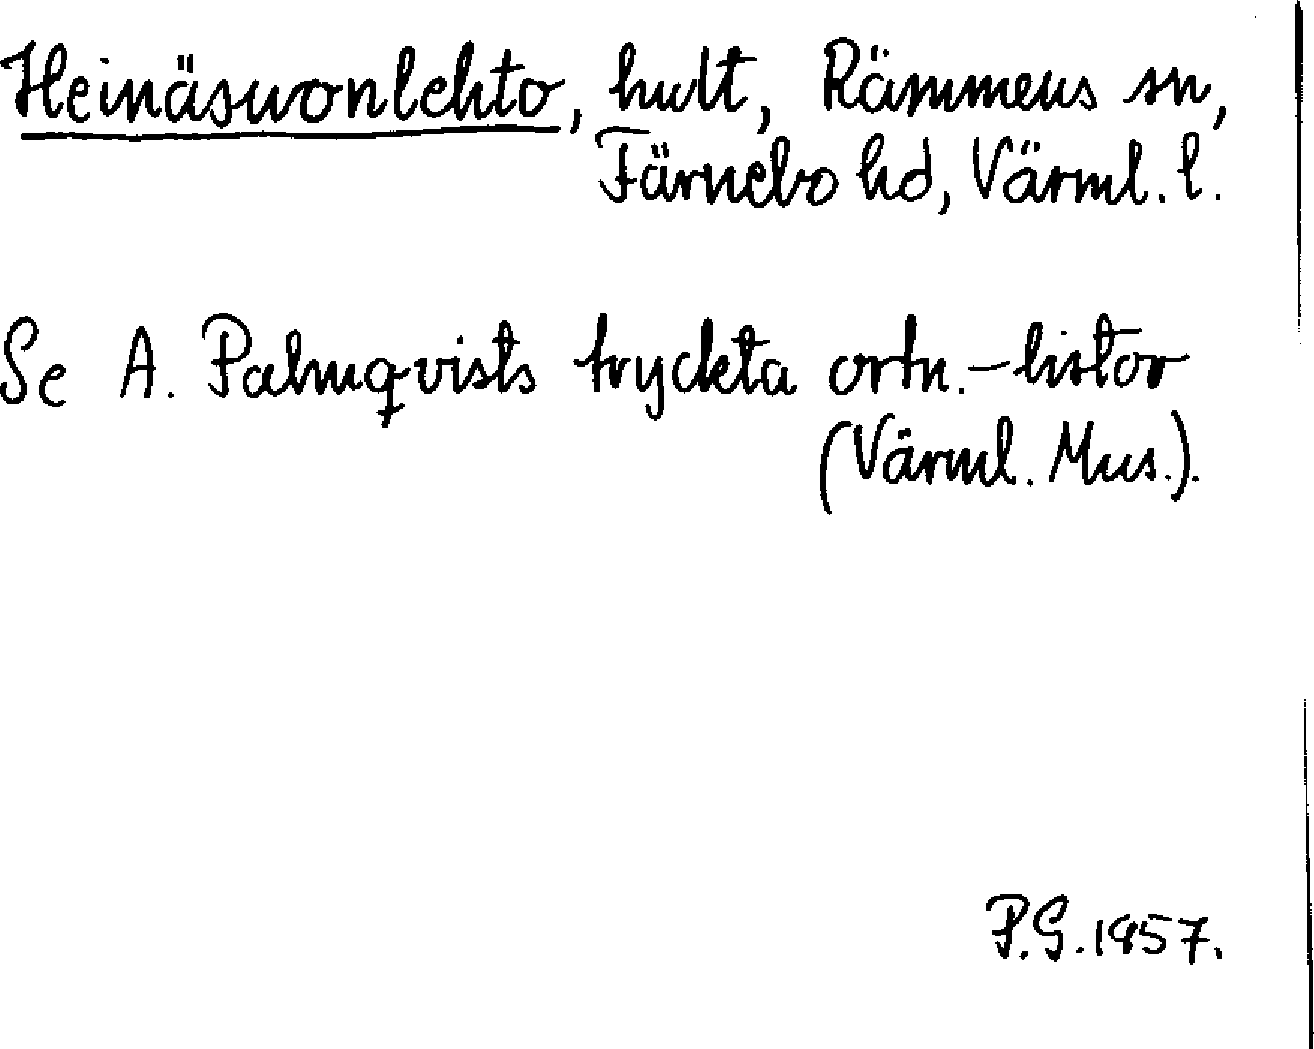 Heinäsuonlehto, hult, Rämmens sn,
Färnebo hd, Värml. l.
Se A. Palmqvists tryckta ortn.-listor
(Värml. Mus.).
P.G. 1957.